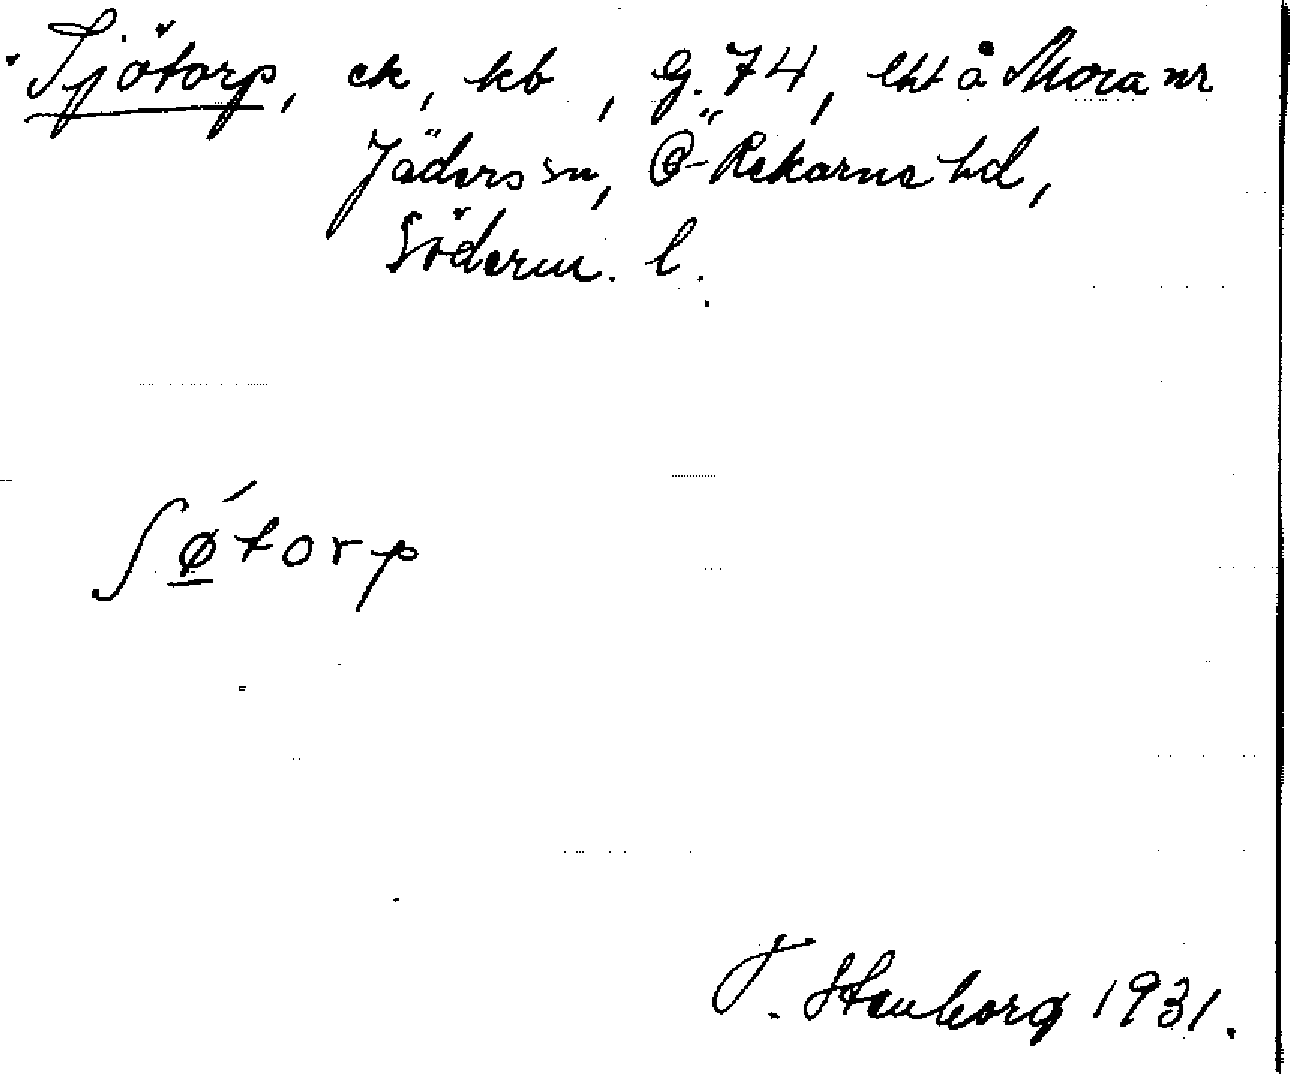 Sjötorp, ek, kb, G. 74, lht å Mora nr
Jäders sn, Ö-Rekarne hd,
Söderm. l.
ʃǿtorp
F. Stenborg 1931.